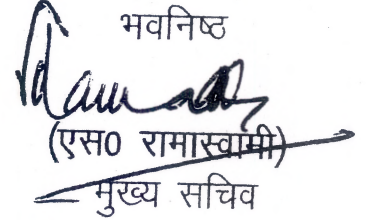 भवनिष्ठ
(एस0 रामास्वामी)
मुख्य सचिव